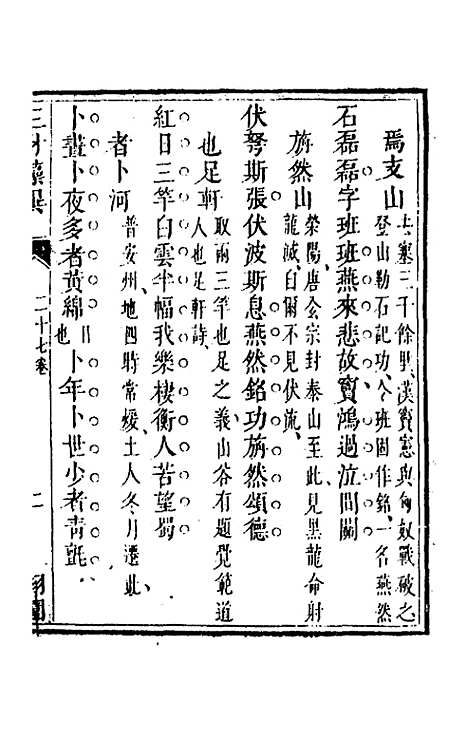 焉支山
去塞三千餘里漢竇憲與匈奴戰破之
登山勒石記功令班固作銘一名燕然
石磊磊字班班燕來悲故竇鴻過泣間關
旃然山
滎陽唐玄宗封泰山至此見黑龍命射
龍滅自爾不見伏流
伏弩斯張伏波斯息燕然銘功旃然頌德
也足軒
取兩三竿也足之義山谷有題覺範道
人也足軒詩
紅日三竿白雲半幅我樂棲衡人苦望蜀
者卜河
普安州地四時常煖土人冬月遷此
卜晝卜夜多者黃綿也卜年卜世少者青氈
二十七卷
二